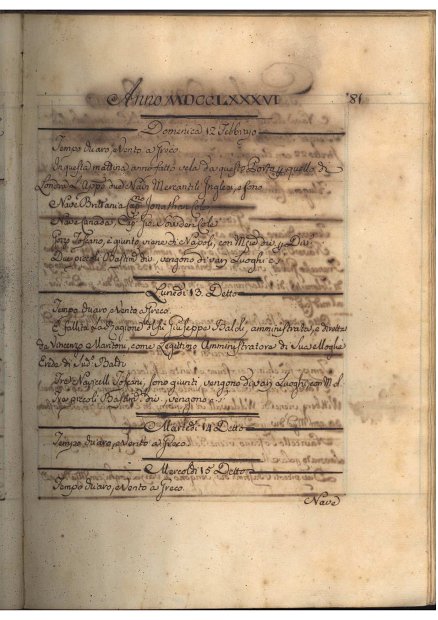 Anno MDCCLXXXVI
81
Domenica 12 Febbrajo
Tempo chiaro, e Vento a Greco.
In questa mattina anno fatto vela da questo Porto p quello di
Londra L'Appo due Navi Mercantili Inglesi, e sono
Nave Brittania Cap. Jonathan
Nave Canada, Cap. Gio: Cowdon Cole
Toscano, è giunto viene di Napoli, con
Due piccoli Bastim. div. vengono di varj Luoghi e
Lunedi 13. Detto
Tempo chiaro, e Vento a Greco.
È fallita La Ragione di Giuseppe Baldi, amministrata, e diretta
da Vincenzo Martini, come Legittimo Amministratore di sua Moglie
Erede di
Tre Navicelli Toscani, sono giunti vengono di varj Luoghi, con M.
piccoli Bastim. vengono
Martedi 14 Detto
Tempo chiaro, e Vento a Greco.
Mercoldi 15 Detto
Tempo chiaro, e Vento a Greco.
Nave